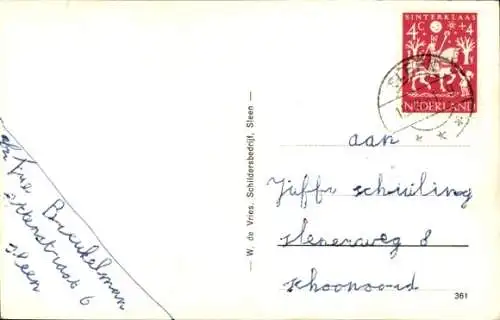 SINTERKLAAS
4c +4
NEDERLAND
SLEEN
aan
Juffr schuiling
slenerweg 8
schoonoord
W. de Vries, Schildersbedrijf, Sleen
Breukelman
6
sleen
361